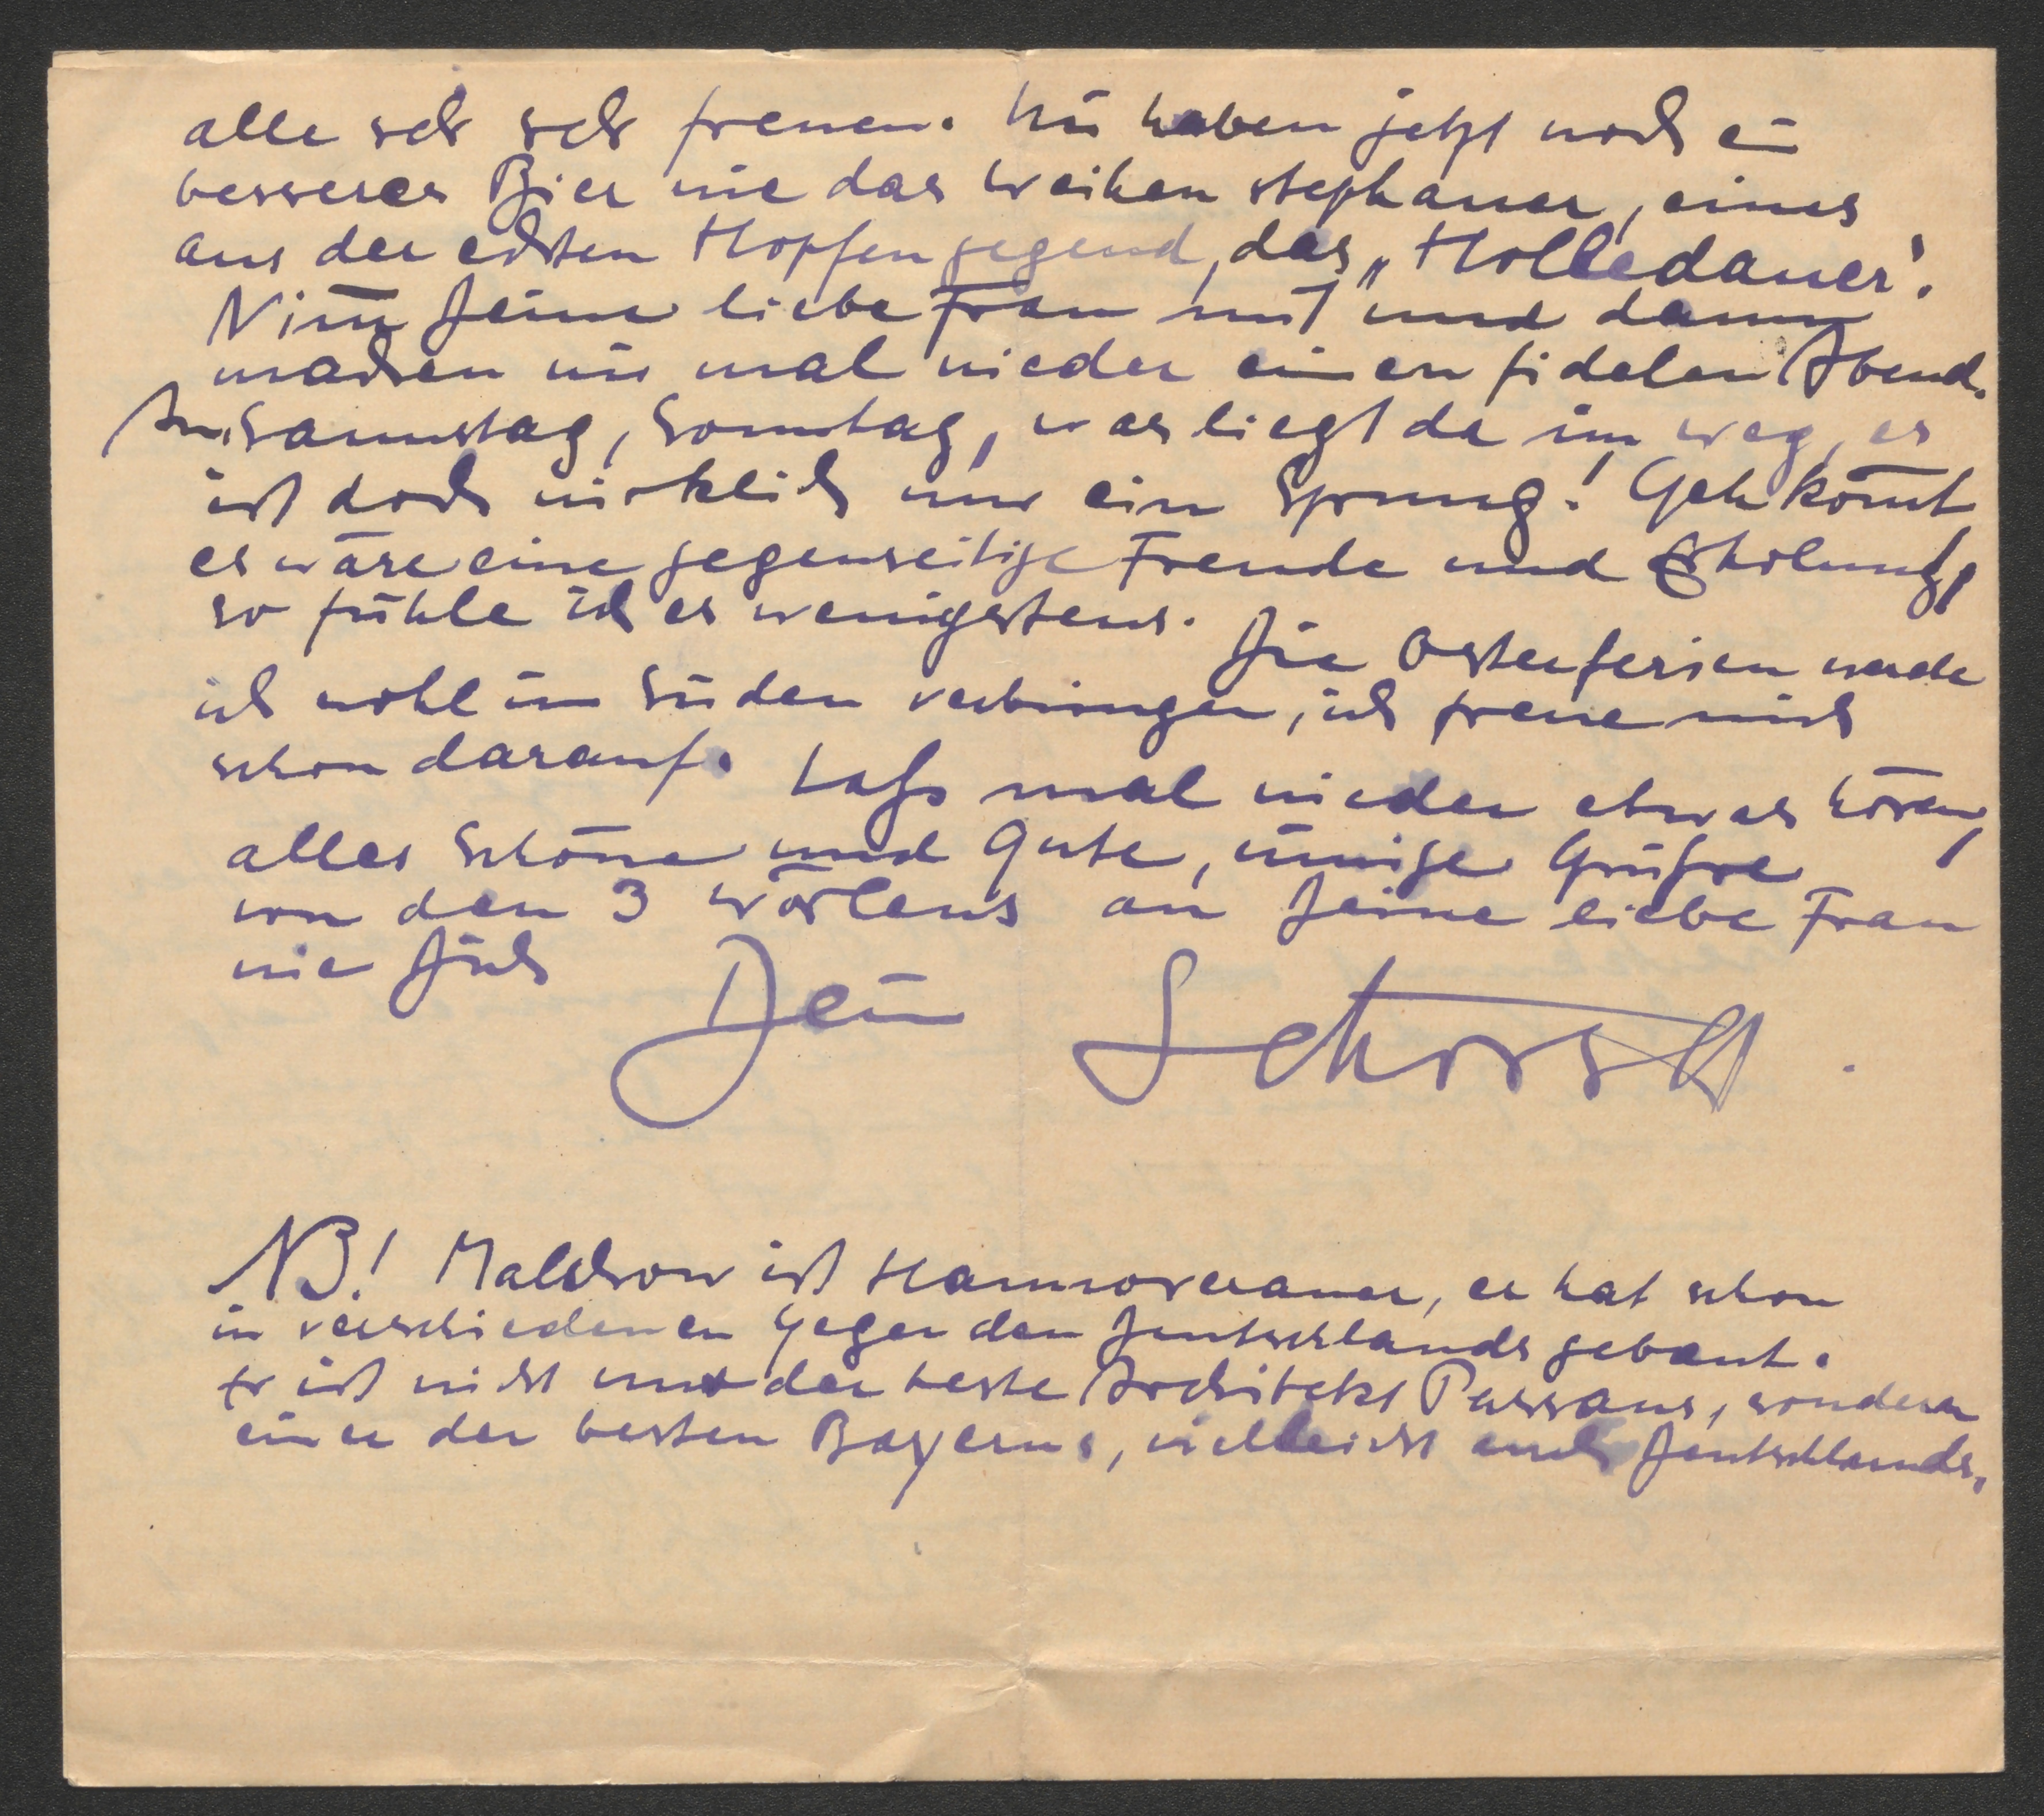 alle sehr sehr freuen. Wir haben jetzt noch ein
besseres Bier wie das Weihenstephaner, eines
aus der echten Hopfengegend, das „Holledauer".
Nim̅ Deine liebe Frau mit und dann
machen wir mal wieder einen fidelen Abend.
Am Samstag, Sonntag, was liegt da im Weg, es
ist doch wirklich nur ein Sprung! Geh kom̅t,
es wäre eine gegenseitige Freude und Erholung,
so fühle ich es wenigstens. Die Osterferien werde
ich wohl im Süden verbringen, ich freue mich
schon darauf. Lass mal wieder etwas hören,
alles Schöne und Gute, innige Grüsse
von den 3 Wörlens an Deine liebe Frau
wie Dich
Dein Schorsch.
NB! Malchow ist Hannoveraner, er hat schon
in verschiedenen Gegenden Deutschlands gebaut.
Er ist nicht nur der beste Architekt Passaus, sondern
einer der besten Bayerns, vielleicht auch Deutschlands.